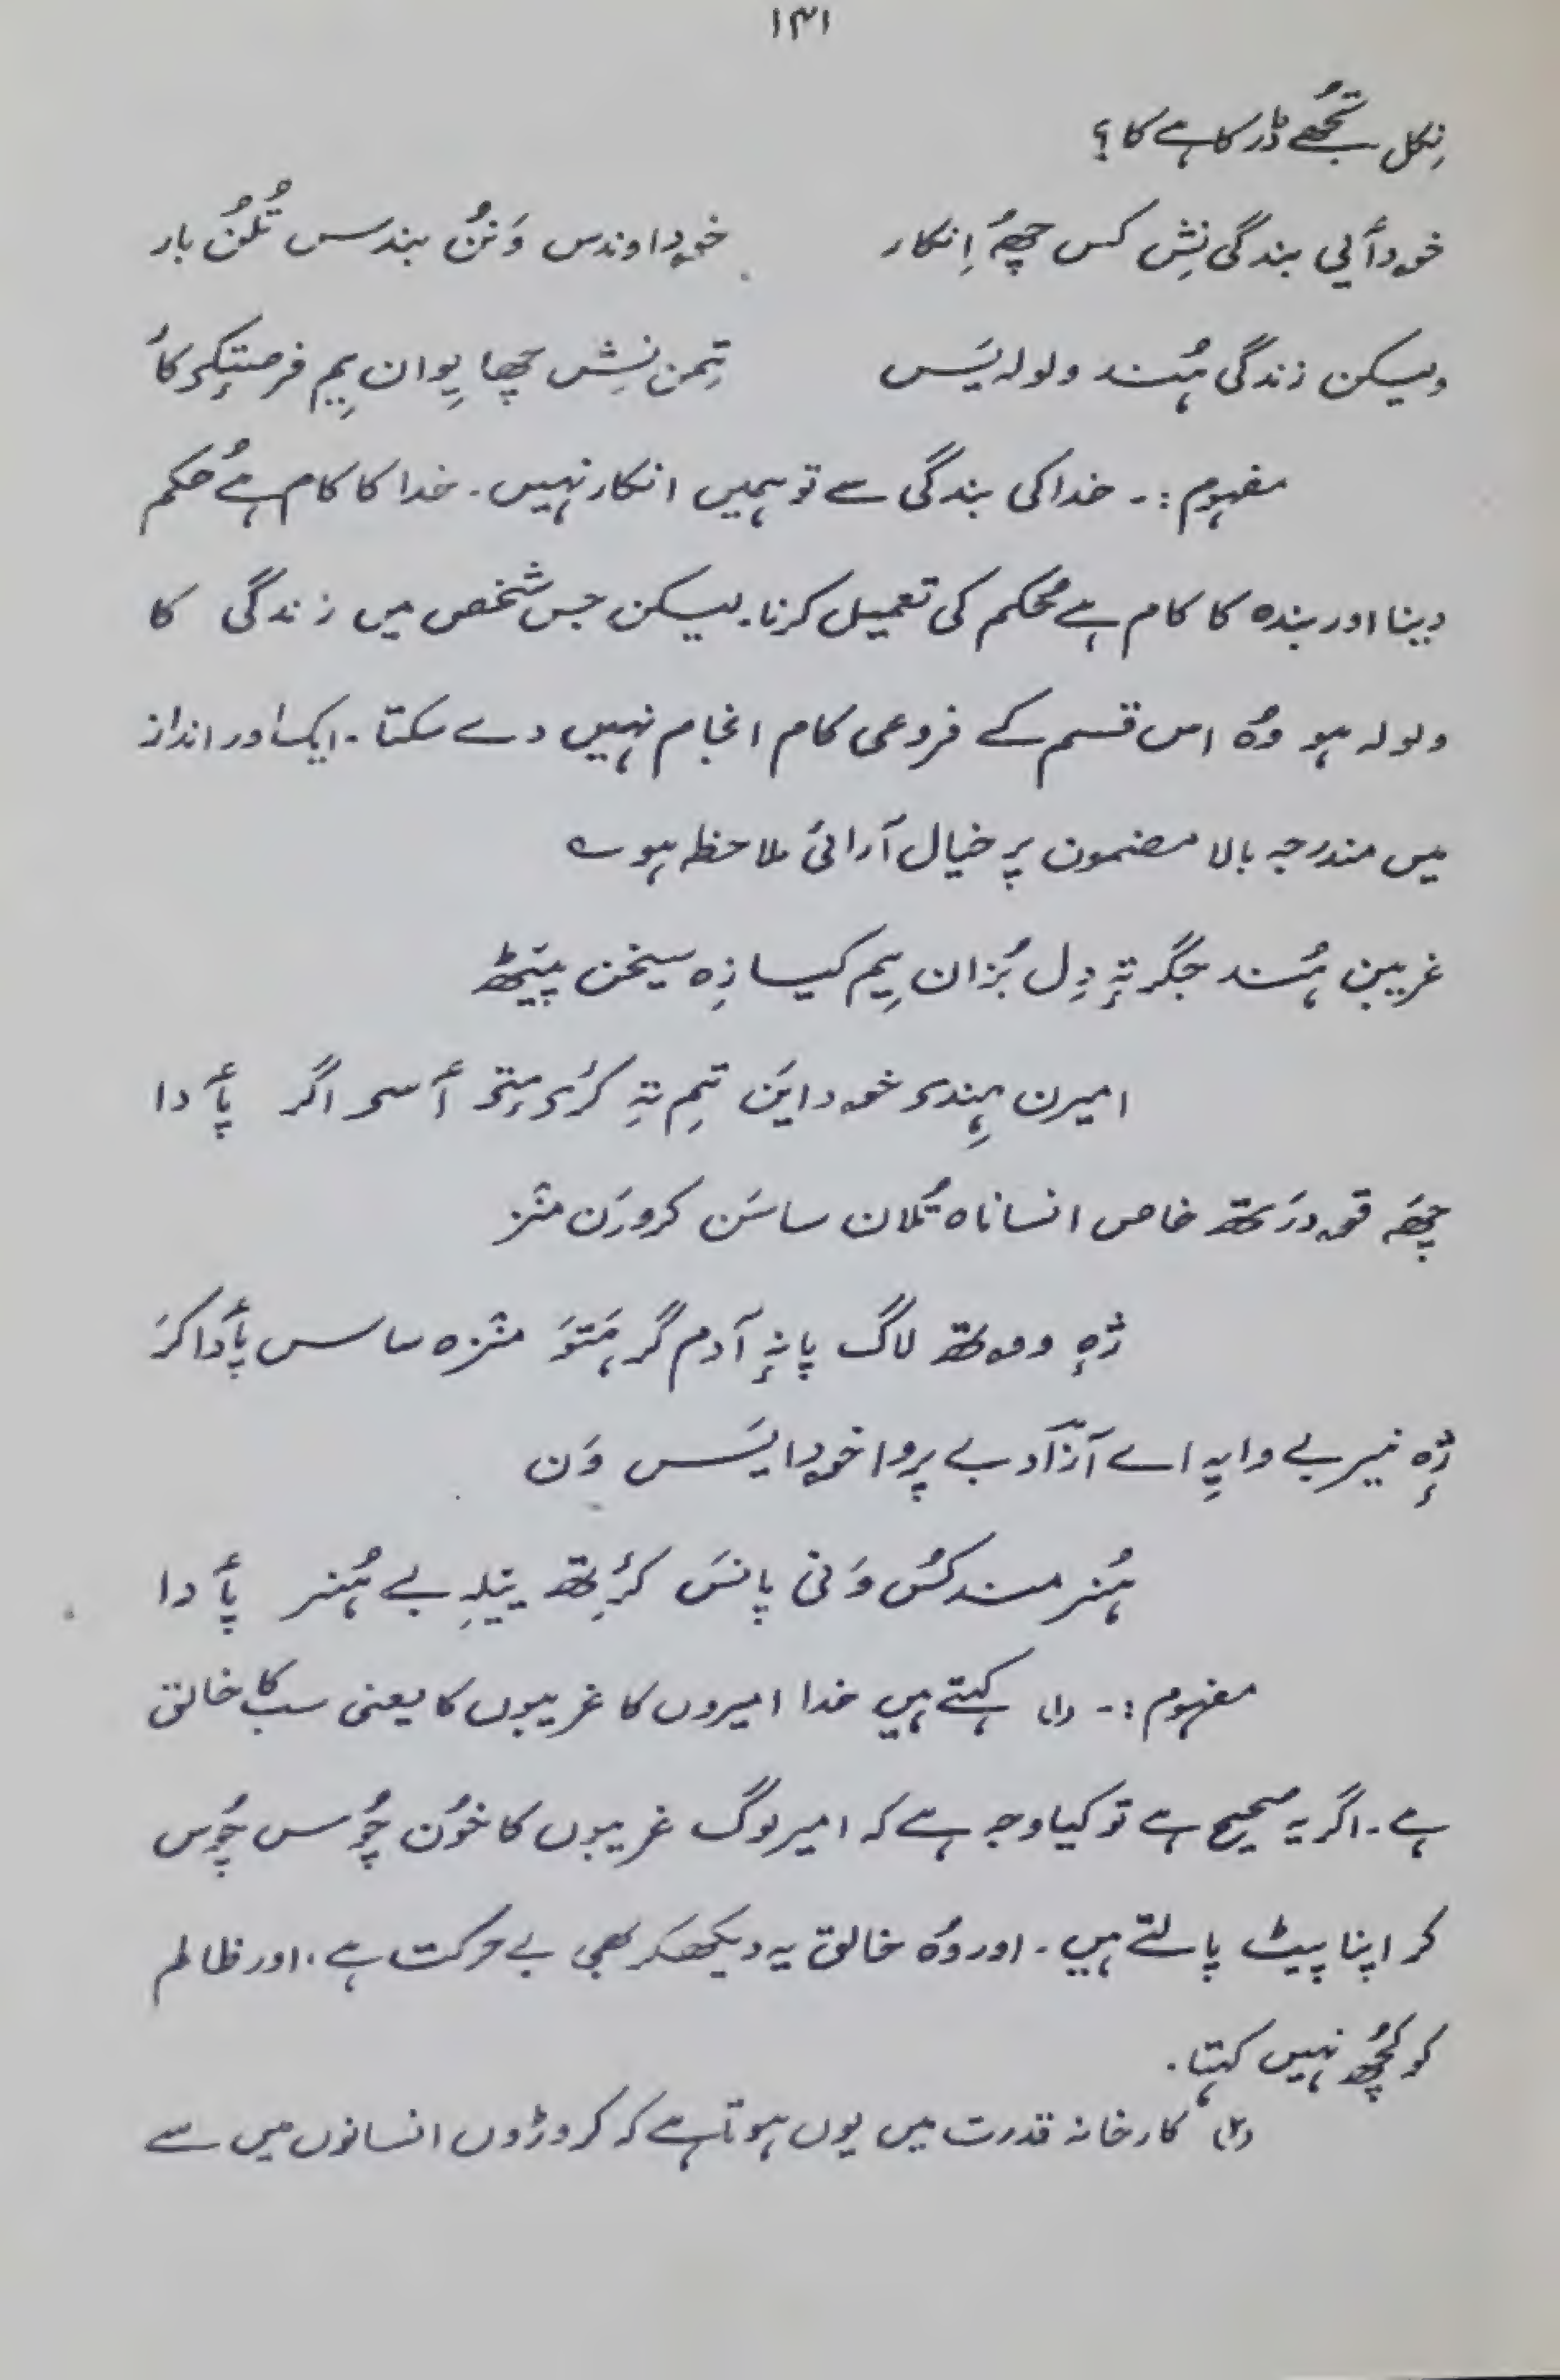 ۱۳۱
نِکل تُجھے ڈر کاہے کا؟
خۄدأیی بندگی نِش کس چھُ اِنکار خۄداوندس وَنُن بندس تُلُن بار
ولیکن زندگی ہُند ولولہ یَس تِمن نِش چھا یِوان یِم فرصتٕکۍ کار
مفہوم :۔ خدا کی بندگی سے تو ہمیں انکار نہیں۔ خدا کا کام ہے حُکم
دینا اور بندہ کا کام ہے حُکم کی تعمیل کرنا۔ لیکن جس شخص میں زندگی کا
ولولہ ہو وُہ اس قسم کے فروعی کام انجام نہیں دے سکتا۔ ایک اور انداز
میں مندرجہ بالا مضمون پر خیال آرائی ملاحظہ ہو ؎
غریبن ہُند جگر تہٕ دِل بُزان یِم کیازِہ سیخن پیٚٹھ
امیرن ہِندۍ خۄداین تِم تہِ کرٔۍمتۍ أسۍ اگر پأدا
چھَہ قۄدرَتھ خاص انساناہ تُلان ساسَن کرورَن منٛز
ژٕہ وۄتھ لاگ پانہٕ آدم گر ہَتَو منٛزہ ساس پأدا کَر
ژٕہ نیر بے وایہِ اے آزاد بے پروا خۄدایَس وَن
ہُنرمند کُس وَنی پانَس کرِٔتھ ییٚلہِ بے ہُنر پأدا
مفہوم :۔ (۱) کہتے ہیں خدا امیروں کا غریبوں کا یعنی سب کا خالق
ہے۔ اگر یہ صحیح ہے تو کیا وجہ ہے کہ امیر لوگ غریبوں کا خُون چُوس چُوس
کر اپنا پیٹ پالتے ہیں۔ اور وُہ خالق یہ دیکھکر بھی بے حرکت ہے۔ اور ظالم
کو کُچھ نہیں کہتا۔
(۲) کارخانہ قدرت میں یوں ہوتا ہے کہ کروڑوں انسانوں میں سے